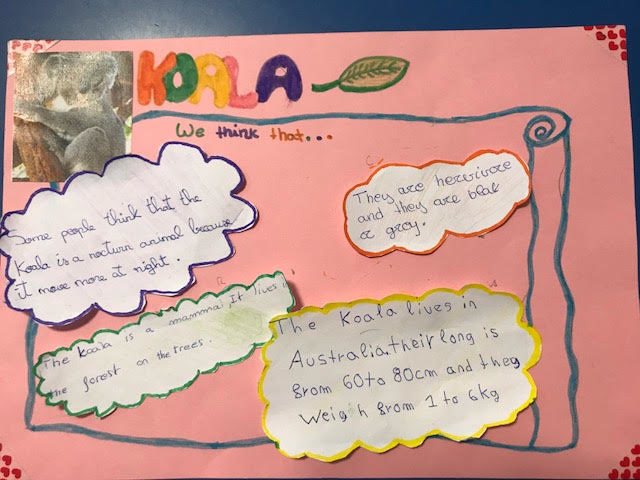 KOALA
We think that...
Some people think that the
Koala is a nocturn animal because
It move more at night.
They are hervivore
and they are blak
or grey.
The Koala is a mammal, It lives i
the forest on the trees.
The Koala lives in
Australia. their long is
from 60 to 80cm and they
weigh from 1 to 6kg